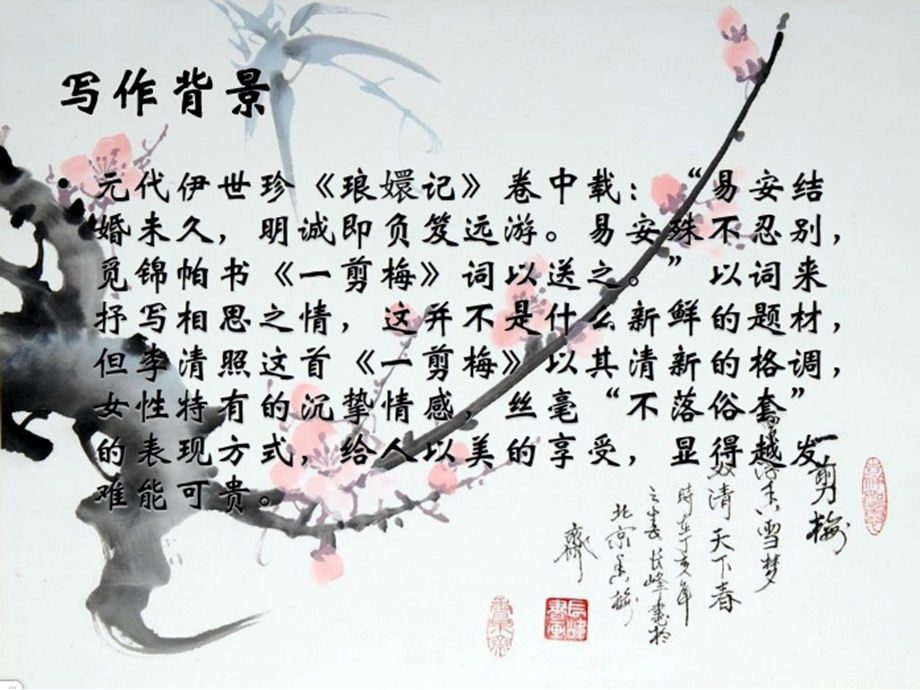 写作背景
• 元代伊世珍《琅嬛记》卷中载：“易安结
婚未久，明诚即负笈远游。易安殊不忍别，
觅锦帕书《一剪梅》词以送之。”以词来
抒写相思之情，这并不是什么新鲜的题材，
但李清照这首《一剪梅》以其清新的格调，
女性特有的沉挚情感，丝毫“不落俗套”
的表现方式，给人以美的享受，显得越发
难能可贵。
一剪梅
香雪梦
清天下春
时在丁亥年
之春长峰画于
北京
斋